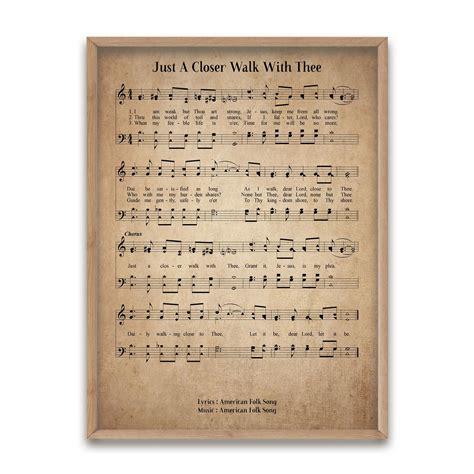 Just A Closer Walk With Thee
1. I am weak but Thou art strong, Je-sus, keep me from all wrong.
2. Thru this world of toil and snares, If I fal-ter, Lord, who cares?
3. When my fee-ble life is o'er, Time for me will be no more.
be sat-is-fied as long As I walk, dear Lord, close to Thee.
Who with me my bur-den shares? None but Thee, dear Lord, none but Thee.
Guide me gen-tly, safe-ly o'er To Thy king-dom shore, to Thy shore.
Chorus
Just a clos-er walk with Thee, Grant it, Je-sus, is my plea.
walking close to Thee, Let it be, dear Lord, let it be.
Lyrics : American Folk Song
Music : American Folk Song